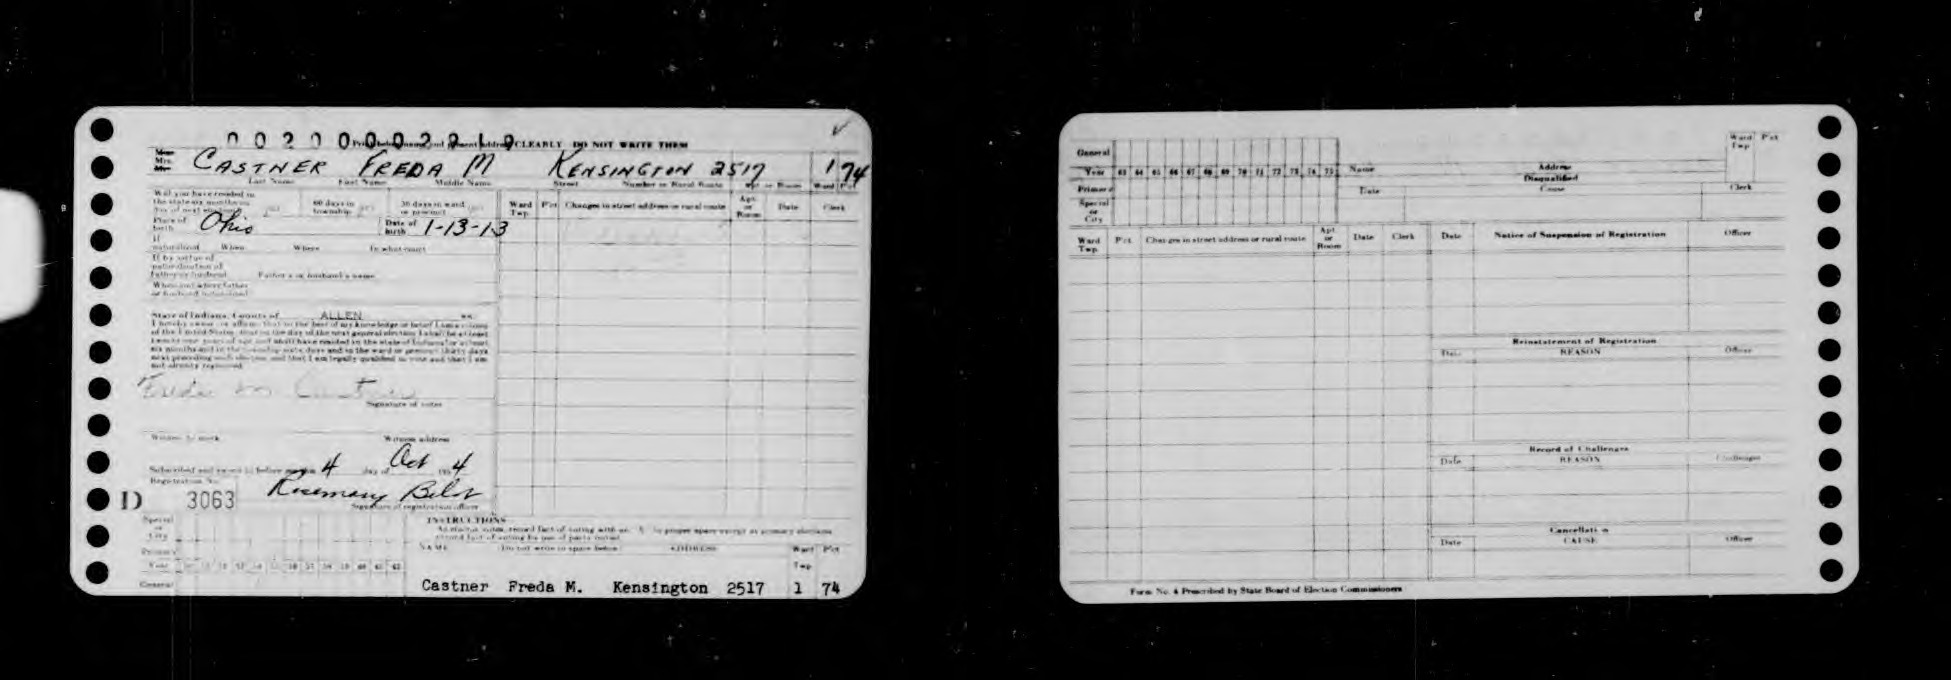 00200002910
Print below name and present address CLEARLY DO NOT WRITE THEM
Miss
Mrs. CASTNER FREDA M KENSINGTON 2517 1 74
Mr.
Last Name First Name Middle Name Street Number or Rural Route Apt. or Room Ward Pct
Will you have resided in
the state six months on 60 days in 30 days in ward
day of next election? yes township yes or precinct yes
Place of birth Ohio Date of birth 1-13-13
Ward Twp. Pct Changes in street address or rural route Apt. or Room Date Clerk
If
naturalized When Where In what court
If by virtue of
naturalization of
father or husband Father's or husband's name
When and where father
or husband naturalized
State of Indiana, County of ALLEN ss.
I hereby swear or affirm that to the best of my knowledge or belief I am a citizen
of the United States, that on the day of the next general election I shall be at least
twenty-one years of age and shall have resided in the state of Indiana for at least
six months and in the township sixty days and in the ward or precinct thirty days
next preceding such election and that I am legally qualified to vote and that I am
not already registered.
Freda M Castner
Signature of voter
Witness to mark Witness address
Subscribed and sworn to before me this 4 day of Oct 1954
Registration No.
D 3063 Rosemary
Signature of registration officer
Special
or
City
Primary
Year
General
INSTRUCTIONS
At election voter, record fact of voting with an X in proper space except at primary elections
record fact of voting by use of party initial.
NAME Do not write in space below ADDRESS Ward Twp Pct
Castner Freda M. Kensington 2517 1 74
General
Year 63 64 65 66 67 68 69 70 71 72 73 74 75
Primary
Special
or
City
Name Address Ward Twp Pct
Disqualified
Date Cause Clerk
Ward Twp. Pct. Changes in street address or rural route Apt. or Room Date Clerk
Date Notice of Suspension of Registration Officer
Reinstatement of Registration
Date REASON Officer
Record of Challenges
Date REASON Challenger
Cancellation
Date CAUSE Officer
Form No. 4 Prescribed by State Board of Election Commissioners